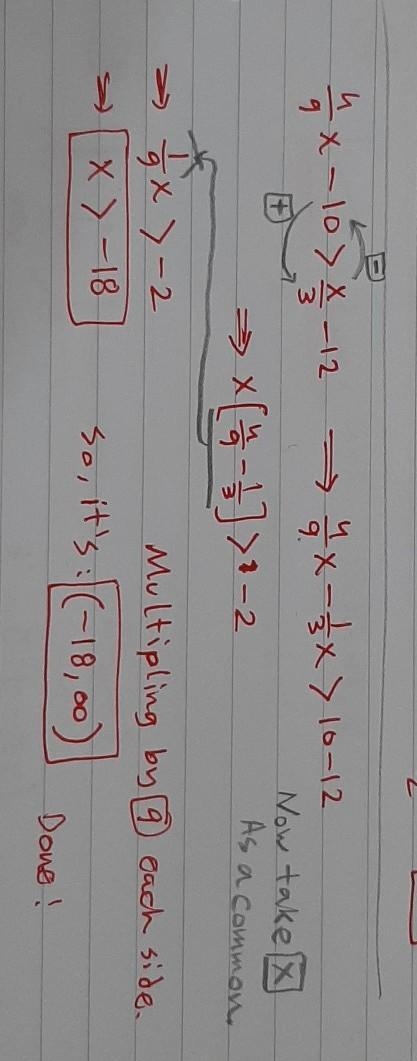 4/9 x - 10 > x/3 - 12 ⇒ 4/9 x - 1/3 x > 10 - 12
- +
Now take x
As a common.
⇒ x [4/9 - 1/3] > -2
⇒ 1/9 x > -2 Multipling by 9 each side.
⇒ x > -18 So, it's: (-18, ∞)
Done!